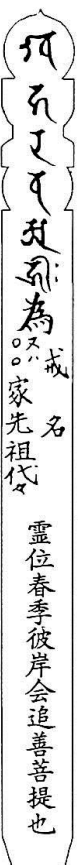 為
戒名
又ハ
○○家先祖代々
靈位春季彼岸会追善菩提也